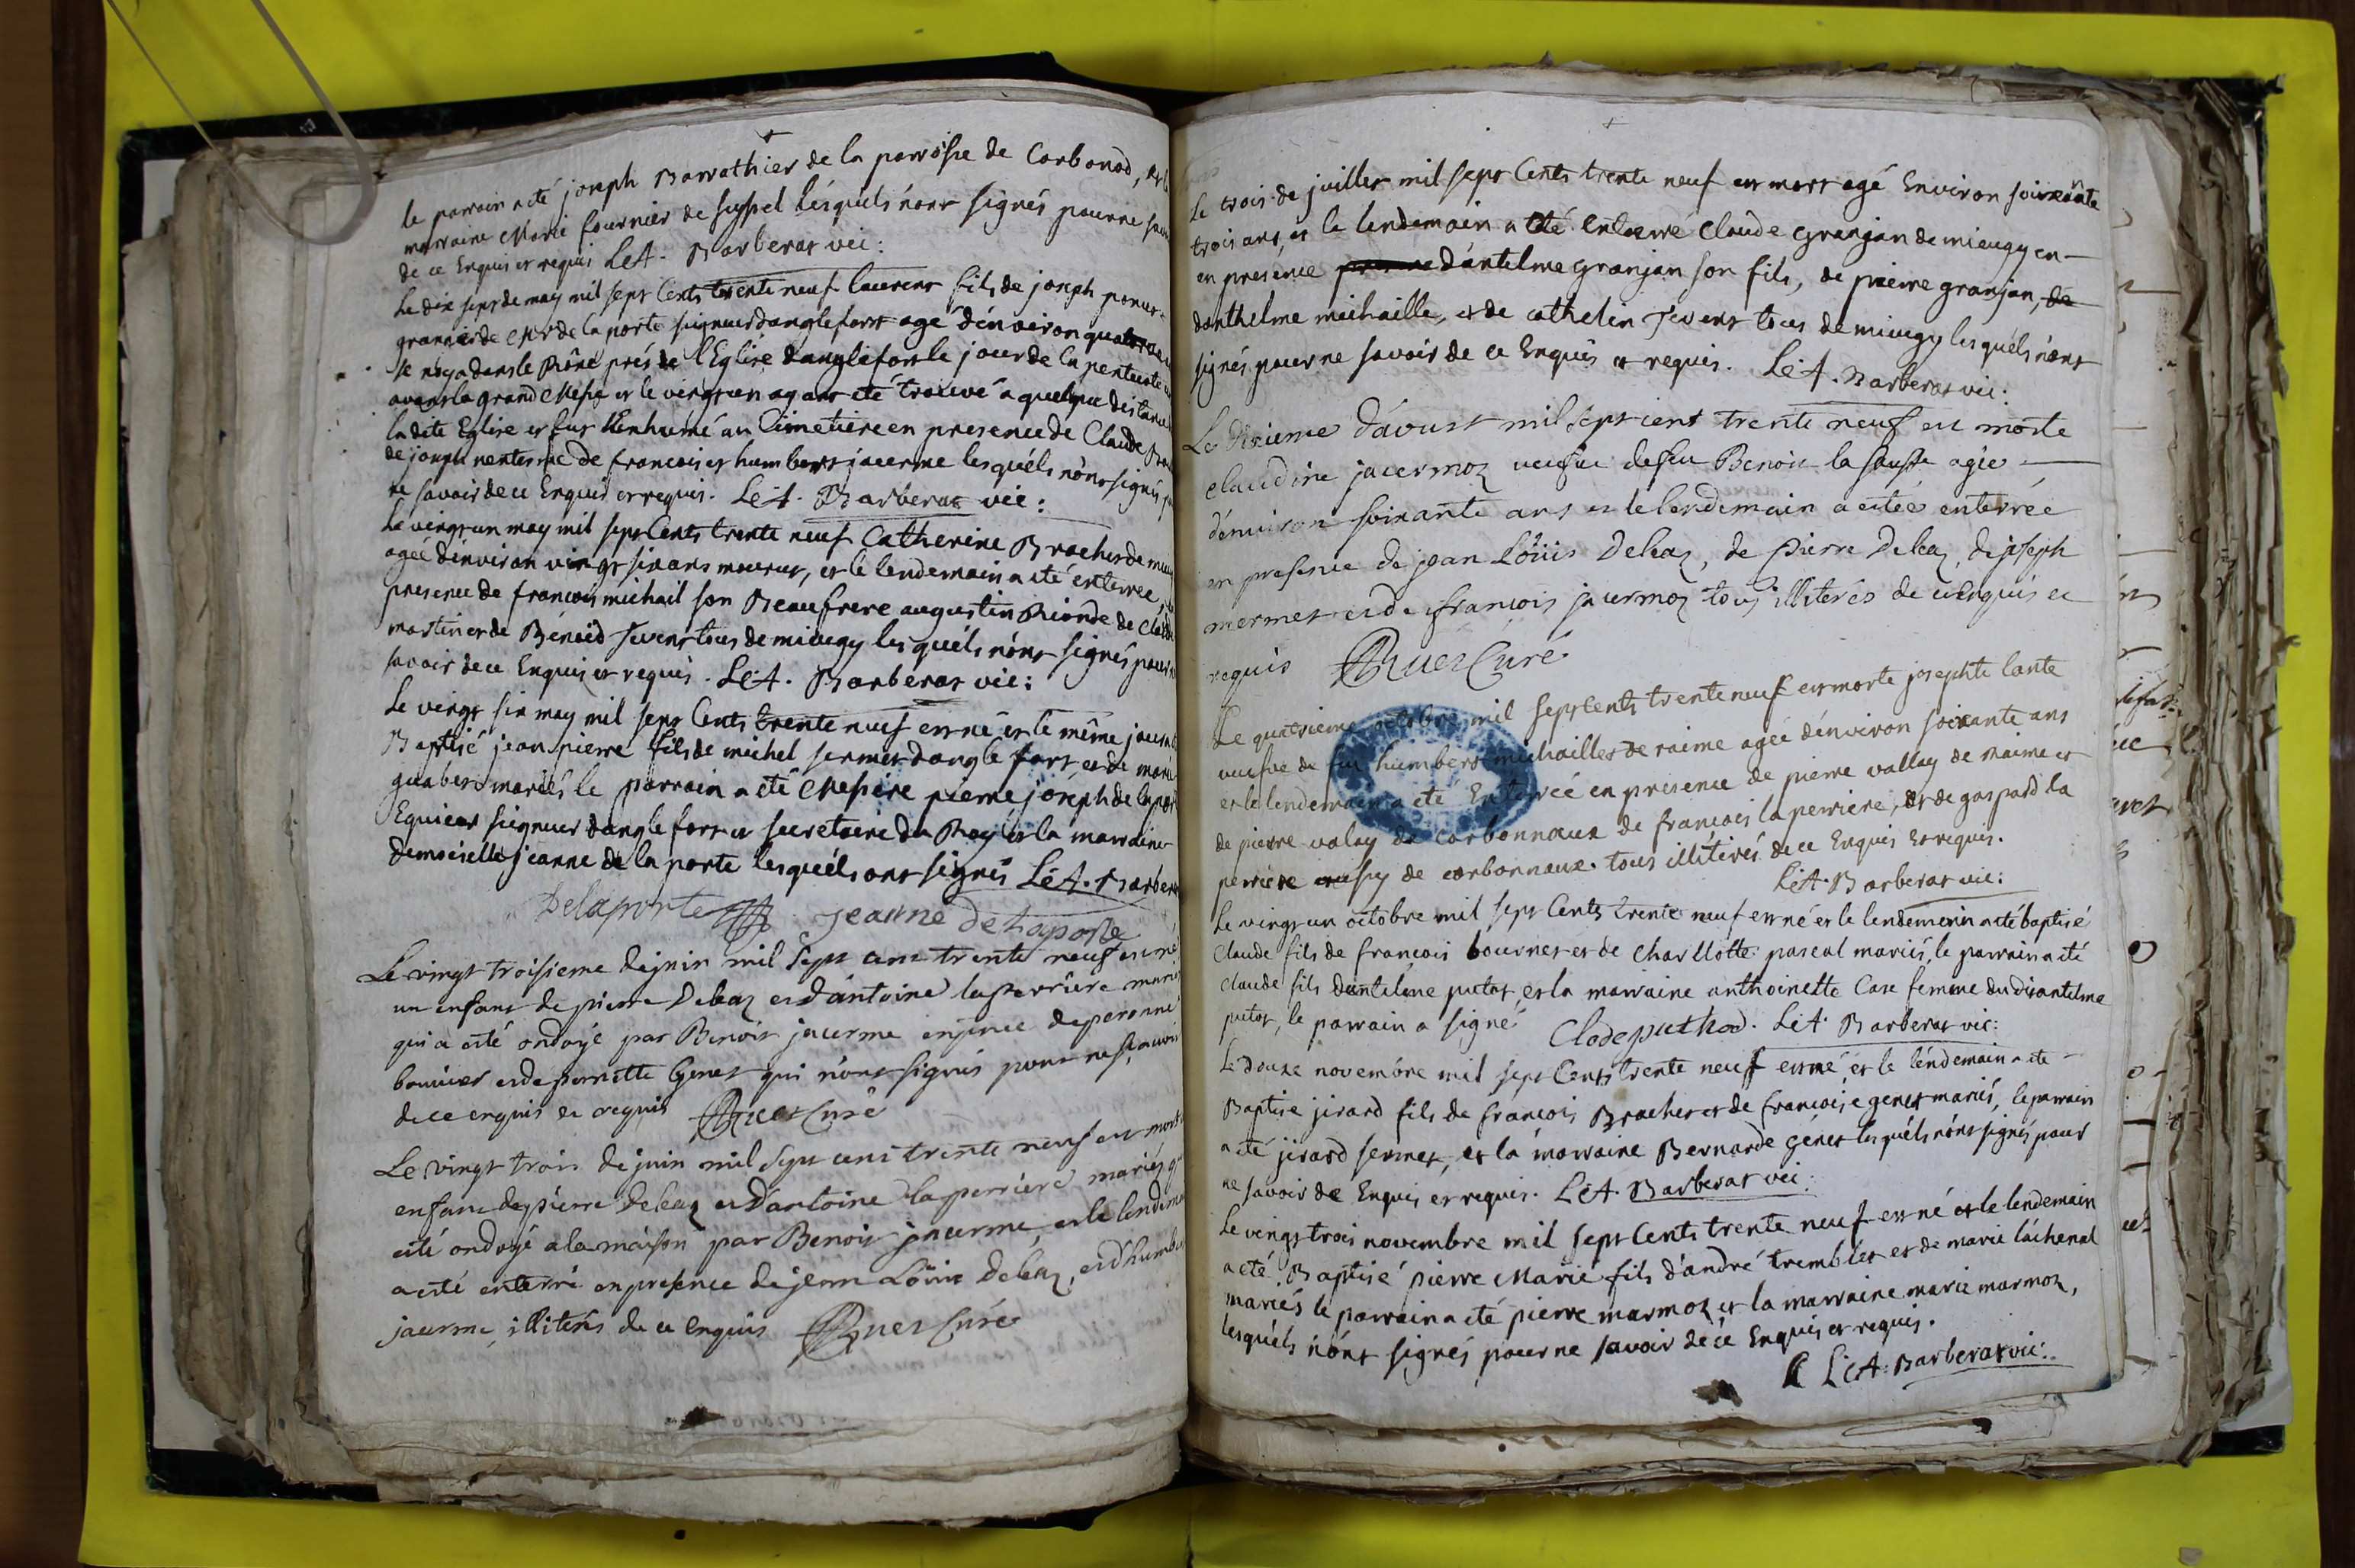 le parrain a été joseph Barrathier de la parroisse de Corbonod, et la
marraine Marie fournier de seyssel lésquels n'ont signés pour ne savoir
de ce Enquis et requis LéA. Barberat vic:
Le dix sept de may mil sept Cents trente neuf laurent fils de joseph
granier de Mr de la porte seigneur danglefort agé d'énviron quatorze
se noya dans le Rône prés de l'Eglise danglefort le jour de la pentecote
avant la grand Messe et le vingt un ayant été trouvé a quelque distance
ladite Eglise et fut Enhumé au Cimetiere en presence de Claude
de joseph nenterme de francois et humbert jacerme lesquéls n'ont signés
ne savoir de ce Enquis et requis. LéA. Barberat vic:
Le vingt un may mil sept Cents trente neuf Catherine Bracher de
agée d'énviron vingt six ans mourut, et le lendemain a été enterrée,
presence de francois michail son Beaufrere augustin Rionde de
martin et de Bénoid Jevent tous de mieugy lesquéls n'ont signés pour
savoir de ce Enquis et requis. LéA. Barberat vic:
Le vingt six may mil sept Cents trente neuf est né et le même jour
Baptisé jean pierre fils de michel sermet danglefort, et de marie
guabert mariés le parrain a été Messire pierre joseph de la porte
Equier seigneur danglefort et secretaire du Roy et la marraine
demoiselle jeanne de la porte lesquéls ont signés LéA. Barberat
Delaporte Jeanne de Laporte
Le vingt troisieme de juin mil sept cent trente neuf est né
un enfant de pierre Deleaz et d'antoine laperriere mariés
qui a esté ondoyé par Benoit jacerme de
bouvier et de pernette Genet qui n'ont signés pour ne scavoir
de ce enquis et requis Ruet Curé
Le vingt trois de juin mil sept cent trente neuf est mort
enfant de pierre Deleaz et d'antoine laperriere mariés
esté ondoyé a la maison par Benoit jacerme, et le lendemain
a esté enterré en presence de jean Loüis Deleaz, et d'humbert
jacerme, illiterés de ce enquis Ruet Curé
Le trois de juillet mil sept Cents trente neuf est mort agé Environ soixante
trois ans, et le lendemain a été Enterré Claude granjan de mieugy en
en presénce d'ántelme granjan son fils, de pierre granjan, de
danthelme michaille, et de cathelin Jevent tous de mieugy lesquéls n'ont
signés pour ne savoir de ce Enquis et requis. LéA. Barberat vic:
Le dixieme d'avust mil sept cent trente neuf est morte
claudine jacermoz veufue de feu Benoit la sausse agée
d'énuiron soixante ans et le lendemain a estée enterrée
en presence de jean Loüis Deleaz, de pierre Deleaz, de joseph
mermet et de françois jacermoz tous illiterés de ce enquis et
requis Ruet Curé
Le quatrieme octobre mil sept cents trente neuf est morte josephte lante
veufve de feu humbert michailler de raime agée d'énviron soixante ans
et le lendemain a été Enterrée en presence de pierre vallay de Raime et
de pierre valay de Corbonnoux de francois la perriere, et de gaspard la
perriere de corbonnoux tous illitérés de ce Enquis et requis.
LéA. Barberat vic:
Le vingt un octobre mil sept Cents trente neuf est né et le lendemain a été baptisé
Claude fils de francois bournet et de Charllotte pascal mariés, le parrain a été
claude fils dantelme putot et la marraine anthoinette Case femme dudit antelme
putot, le parrain a signé Clode puthod. LéA. Barberat vic:
Le douze novembre mil sept Cents trente neuf est né et le léndemain a été
Baptise jirard fils de françois Bracher et de francoise genet mariés, le parrain
a été jirard sermet, et la marraine Bernarde génet lesquéls n'ont signés pour
ne savoir de Enquis et requis. LéA. Barberat vic:
Le vingt trois novembre mil sept Cents trente neuf est né et le lendemain
a été Baptisé pierre Marie fils d'andré tremblet et de marie láchenal
mariés le parrain a été pierre marmoz et la marraine marie marmoz,
lesquéls n'ónt signés pour ne savoir de ce Enquis et requis.
LéA. Barberat vic: